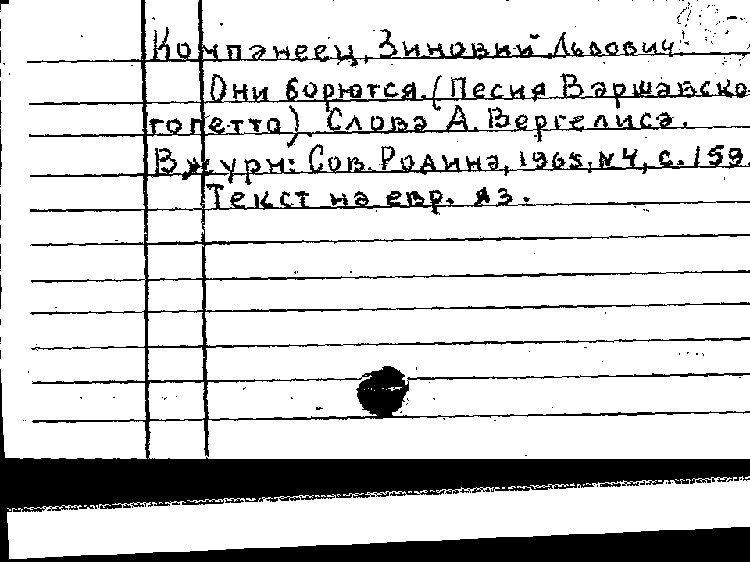 Компанеец, Зиновий Львович.
Они борются. (Песня Варшавско
гопетто). Слова А. Вергелиса.
В журн: Сов. Родина, 1965, N4, с. 159.
Текст на евр. яз.